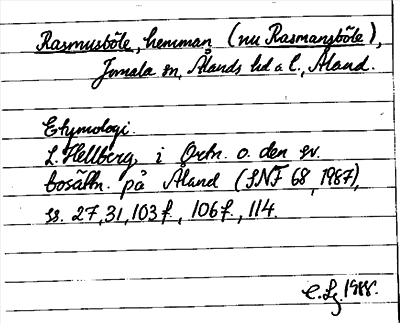 Rasmusböle, hemman (nu Rasmansböle),
Jomala sn, Ålands hd o. l., Åland.
Etymologi.
L. Hellberg i Ortn. o. den sv.
bosättn. på Åland (SNF 68, 1987),
ss. 27, 31, 103 f., 106 f., 114.
1988.